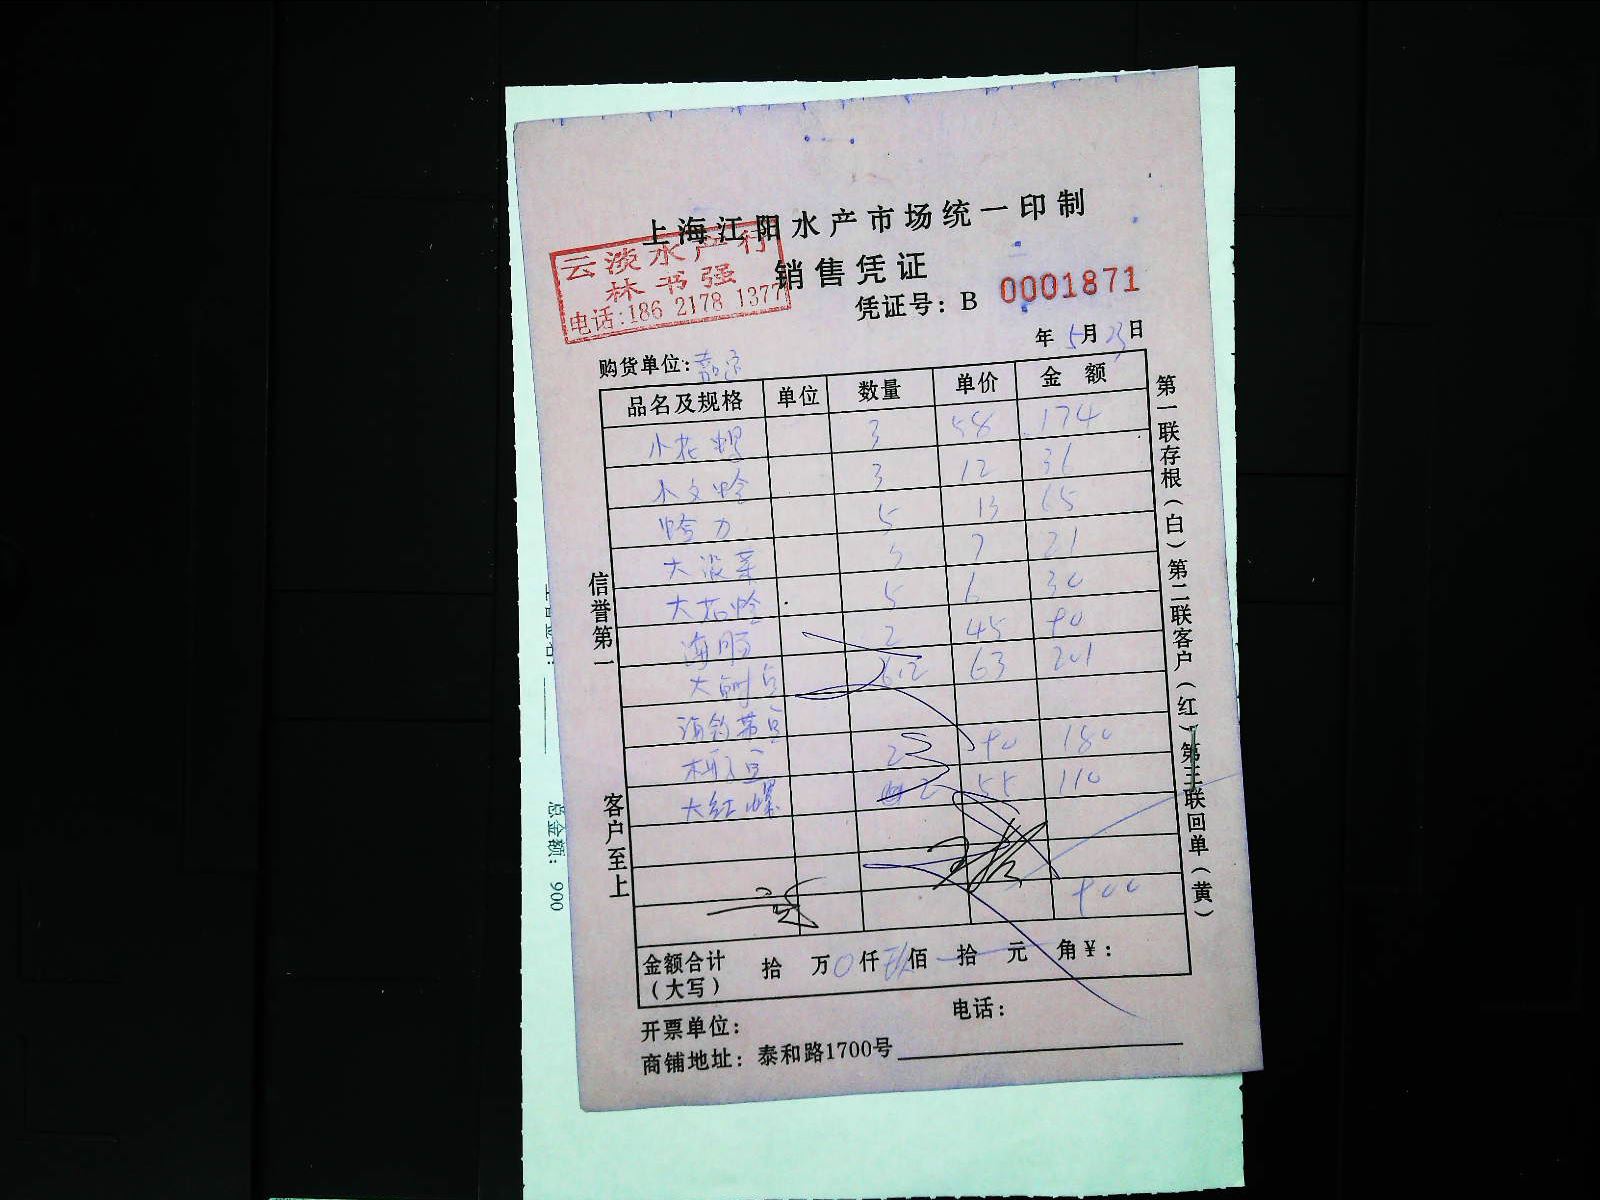 上海江阳水产市场统一印制
云淡水产行
林书强
电话:186 2178 1377
销售凭证
凭证号: B 0001871
年 5月 23日
购货单位:
品名及规格 单位 数量 单价 金 额
小花螺 3 58 174
小文蛤 3 12 36
蛤力 5 13 65
大菠菜 3 7 21
大花蛤 5 6 30
海肠 2 45 90
63 201
2 90 180
大红螺 2 55 110
900
金额合计
(大写)
拾 万 0 仟 玖 佰 拾 元 角 ¥:
开票单位:
电话:
商铺地址: 泰和路1700号
信誉第一
客户至上
第一联存根(白)第二联客户(红)第三联回单(黄)
总金额: 900